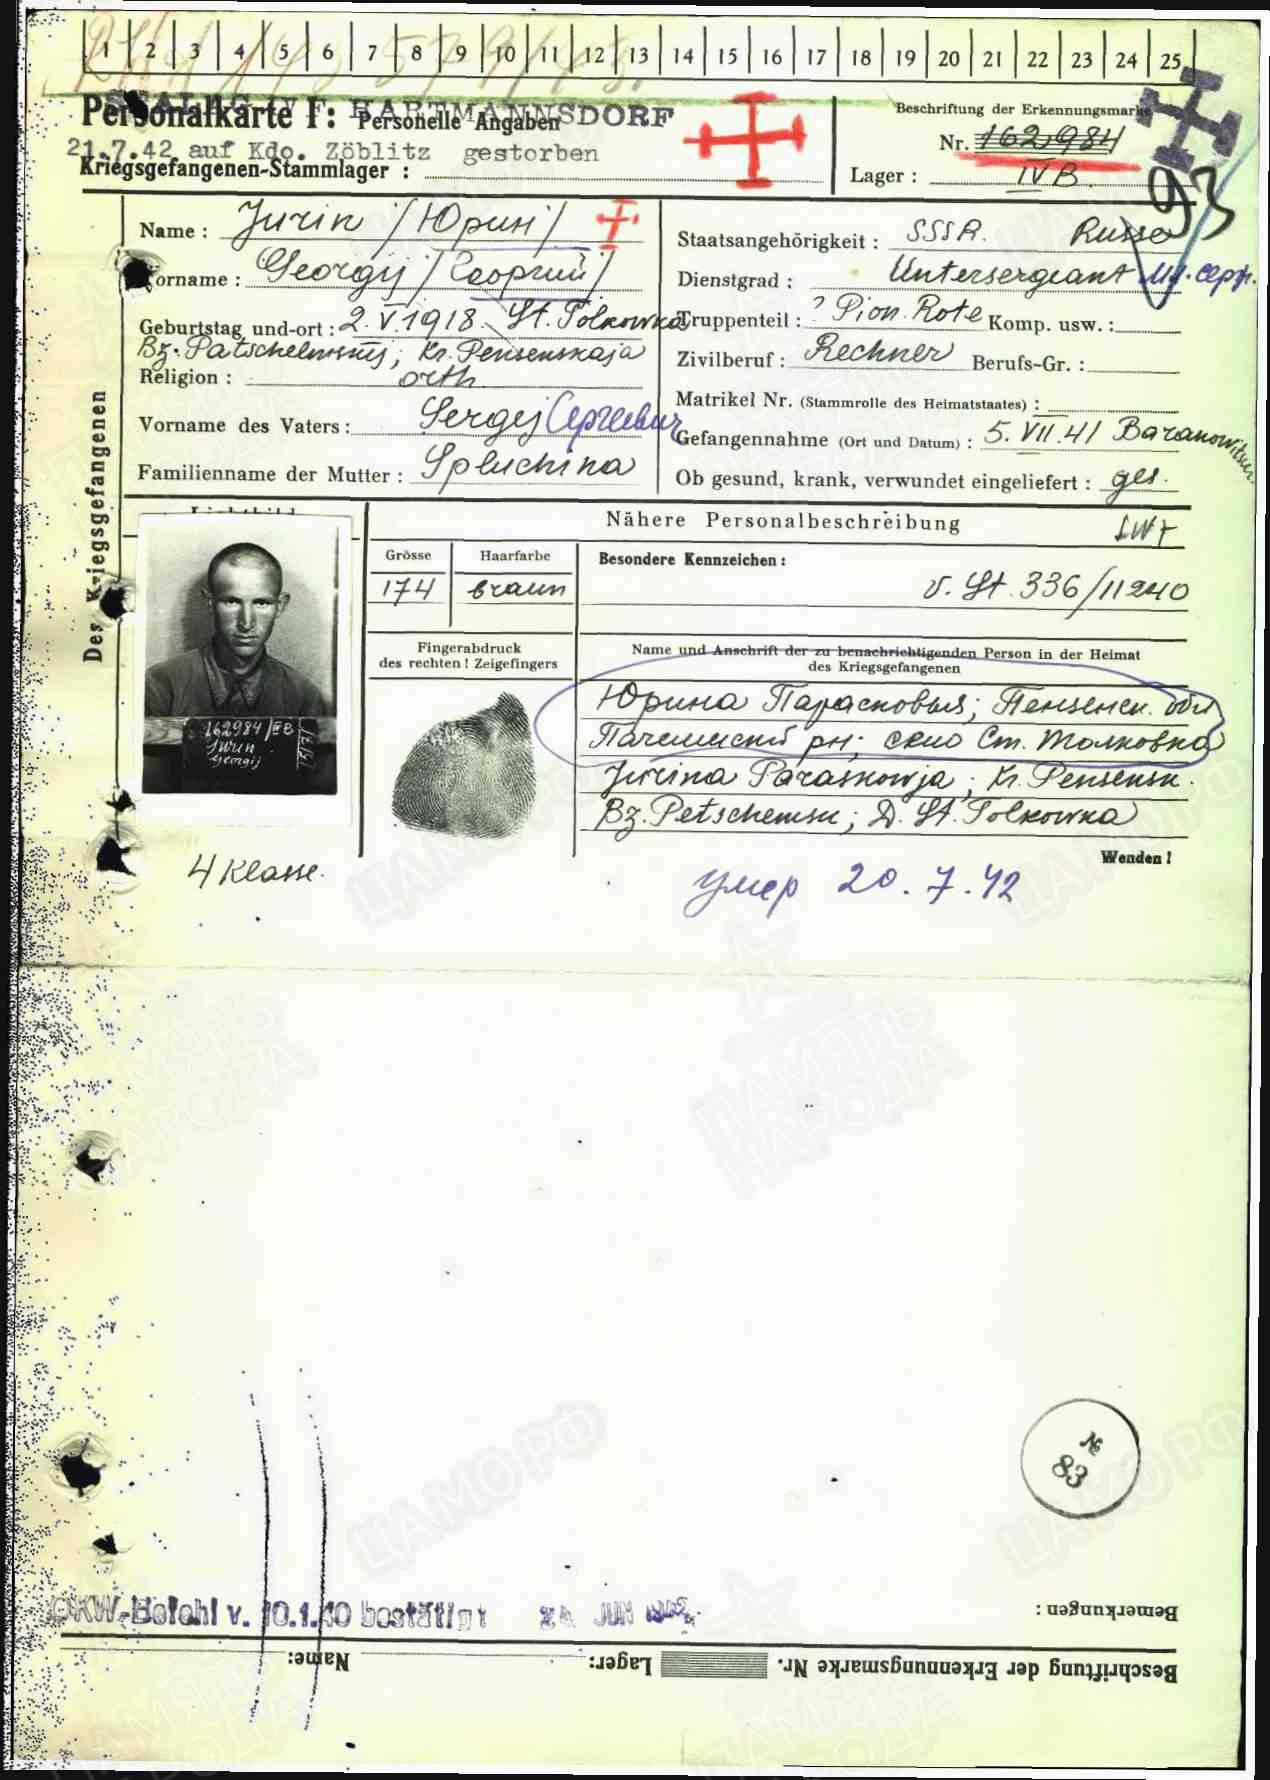 1 2 3 4 5 6 7 8 9 10 11 12 13 14 15 16 17 18 19 20 21 22 23 24 25
STALAG IV F: HARTMANNSDORF
Personalkarte I: Personelle Angaben
21.7.42 auf Kdo. Zöblitz gestorben
Kriegsgefangenen-Stammlager :
Beschriftung der Erkennungsmarke
Nr. 162984
Lager : IV B.
93
Des Kriegsgefangenen
Name : Jurin /Юрин/
Vorname : Georgij /Георгий/
Geburtstag und-ort : 2.V.1918. St. Tolkowka
Bz. Patschelmskij; Kr. Pensenskaja
Religion : orth
Vorname des Vaters : Sergej Сергеевич
Familienname der Mutter : Spluchina
Staatsangehörigkeit : SSSR. Russe
Dienstgrad : Untersergeant Мл. серж.
Truppenteil : ? Pion. Rote Komp. usw. :
Zivilberuf : Rechner Berufs-Gr. :
Matrikel Nr. (Stammrolle des Heimatstaates) :
Gefangennahme (Ort und Datum) : 5. VII. 41 Baranowitschi
Ob gesund, krank, verwundet eingeliefert : ges.
Lichtbild
Nähere Personalbeschreibung
Grösse
174
Haarfarbe
braun
Besondere Kennzeichen :
v. St. 336/11240
Fingerabdruck
des rechten ! Zeigefingers
Name und Anschrift der zu benachrichtigenden Person in der Heimat
des Kriegsgefangenen
Юрина Парасковья; Пензенск. обл
Пачелмский рн; село Ст. Толковка
Jurina Paraskowja; Kr. Pensensk.
Bz. Petschemsk; D. St. Tolkowka
162984/IVB
Jurin
Georgij
Wenden !
4 Klasse.
умер 20.7.42
№
83
OKW-Befehl v. 10.1.40 bestätigt 24 JUN 1942
Bemerkungen :
Beschriftung der Erkennungsmarke Nr. Lager: Name:
ЦАМО РФ
ПАМЯТЬ НАРОДА